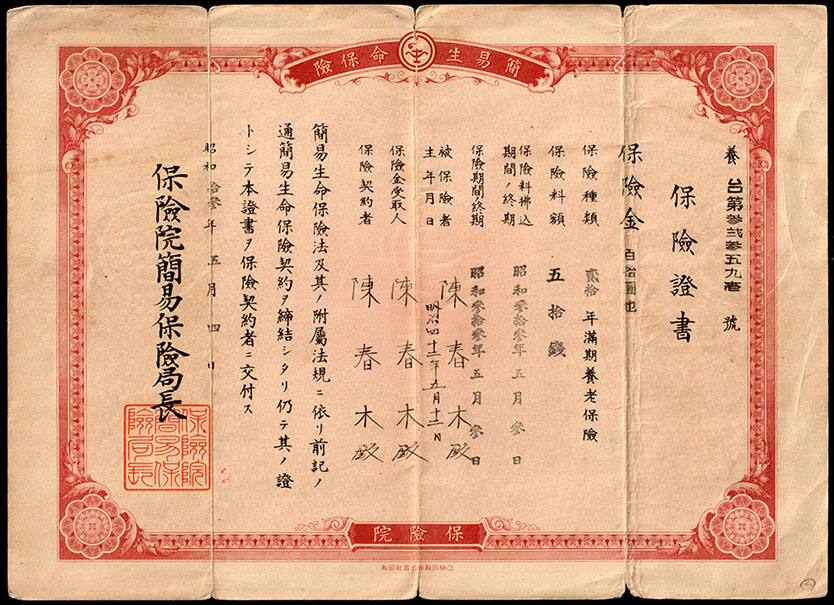 簡易生命保險
養 台第參貳參五九壱 號
保險證書
保險金 百拾圓也
保險種類 貳拾年滿期養老保險
保險料額 五拾錢
保險料拂込期間ノ終期 昭和參拾參年五月參日
保險期間ノ終期 昭和參拾參年五月參日
被保險者 陳春木殿
生年月日 明治四十一年五月十二日
保險金受取人 陳春木殿
保險契約者 陳春木殿
簡易生命保險法及其ノ附屬法規ニ依リ前記ノ
通簡易生命保險契約ヲ締結シタリ仍テ其ノ證
トシテ本證書ヲ保險契約者ニ交付ス
昭和拾參年五月四日
保險院簡易保險局長
保險院
簡易保
險局長
保險院